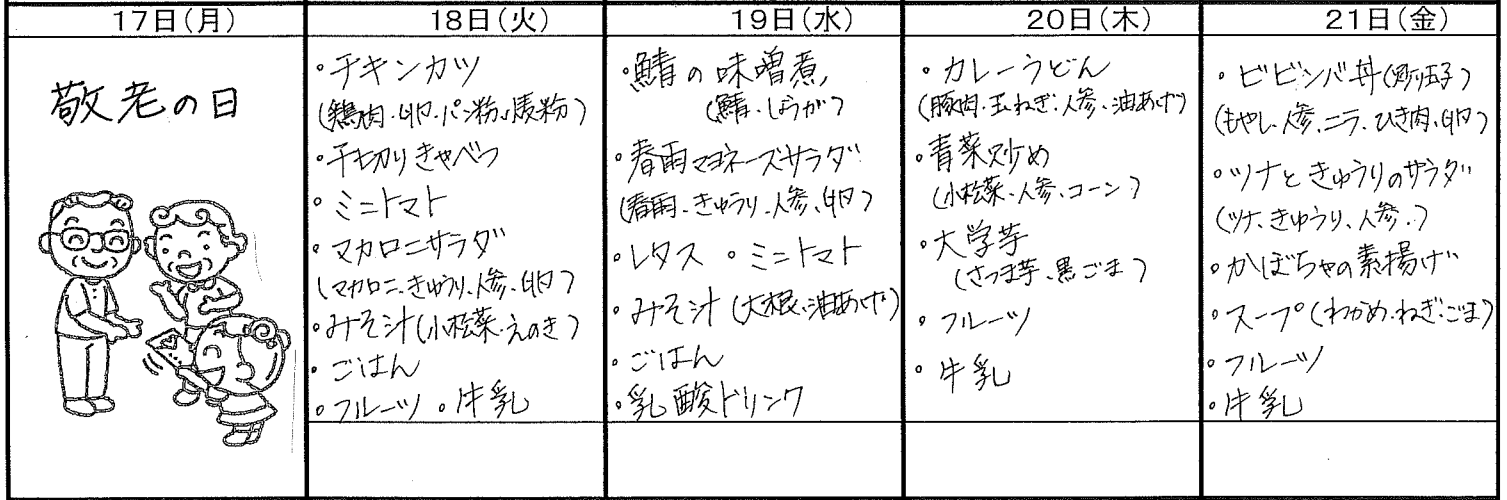 17日(月)
敬老の日
18日(火)
・チキンカツ
(鶏肉・卵・パン粉・麦粉)
・千切りきゃべつ
・ミニトマト
・マカロニサラダ
(マカロニ、きゅうり、人参、卵)
・みそ汁(小松菜・えのき)
・ごはん
・フルーツ ・牛乳
19日(水)
・鯖の味噌煮
(鯖・しょうが)
・春雨マヨネーズサラダ
(春雨、きゅうり、人参、卵)
・レタス ・ミニトマト
・みそ汁(大根、油あげ)
・ごはん
・乳酸ドリンク
20日(木)
・カレーうどん
(豚肉・玉ねぎ・人参・油あげ)
・青菜炒め
(小松菜・人参・コーン)
・大学芋
(さつま芋、黒ごま)
・フルーツ
・牛乳
21日(金)
・ビビンバ丼(炒り玉子)
(もやし、人参、ニラ、ひき肉、卵)
・ツナときゅうりのサラダ
(ツナ、きゅうり、人参、)
・かぼちゃの素揚げ
・スープ(わかめ・ねぎ・ごま)
・フルーツ
・牛乳